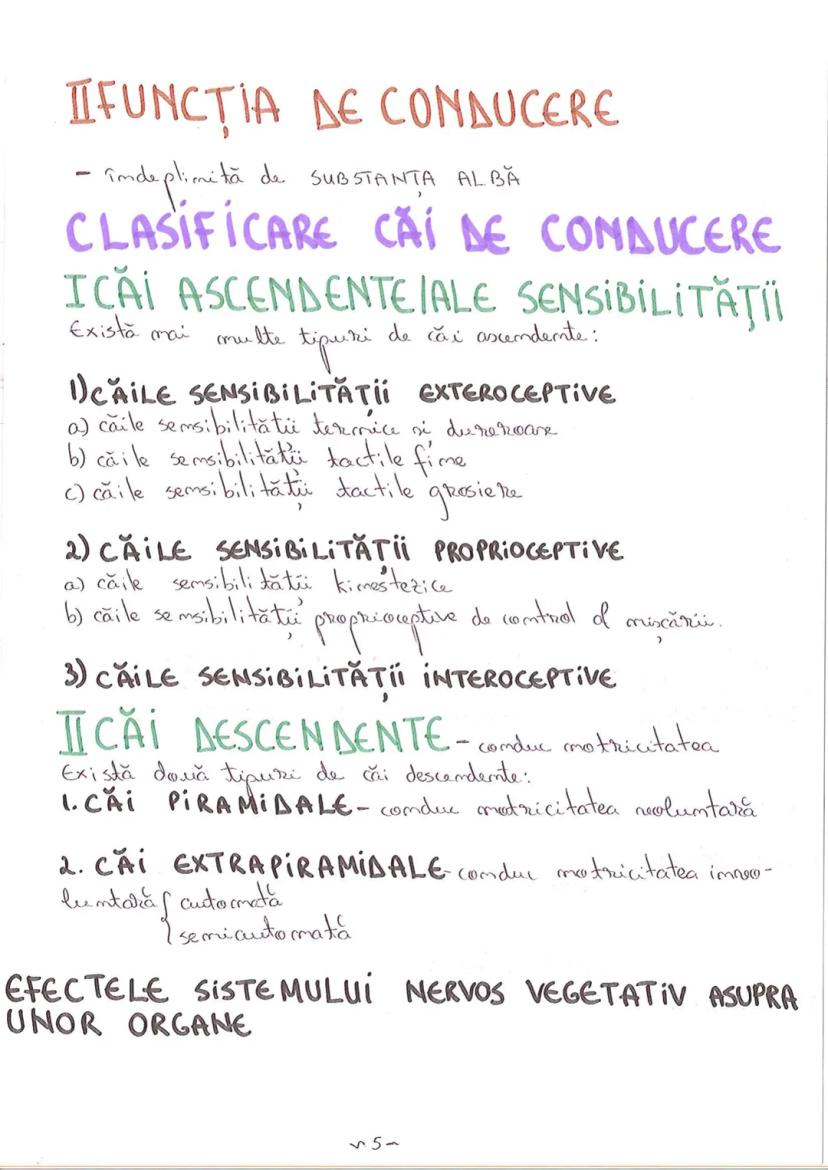 II FUNCȚIA DE CONDUCERE
- îndeplinită de SUBSTANȚA ALBĂ
CLASIFICARE CĂI DE CONDUCERE
I CĂI ASCENDENTE/ALE SENSIBILITĂȚII
Există mai multe tipuri de căi ascendente:
1) CĂILE SENSIBILITĂȚII EXTEROCEPTIVE
a) căile sensibilității termice și dureroare
b) căile sensibilității tactile fine
c) căile sensibilității tactile grosiere
2) CĂILE SENSIBILITĂȚII PROPRIOCEPTIVE
a) căile sensibilității kinestezice
b) căile sensibilității proprioceptive de control al mișcării.
3) CĂILE SENSIBILITĂȚII INTEROCEPTIVE
II CĂI DESCENDENTE - conduc motricitatea
Există două tipuri de căi descendente:
1. CĂI PIRAMIDALE - conduc motricitatea voluntară
2. CĂI EXTRAPIRAMIDALE - conduc motricitatea invo-
luntară { automată
semiautomată
EFECTELE SISTEMULUI NERVOS VEGETATIV ASUPRA
UNOR ORGANE
~ 5 ~